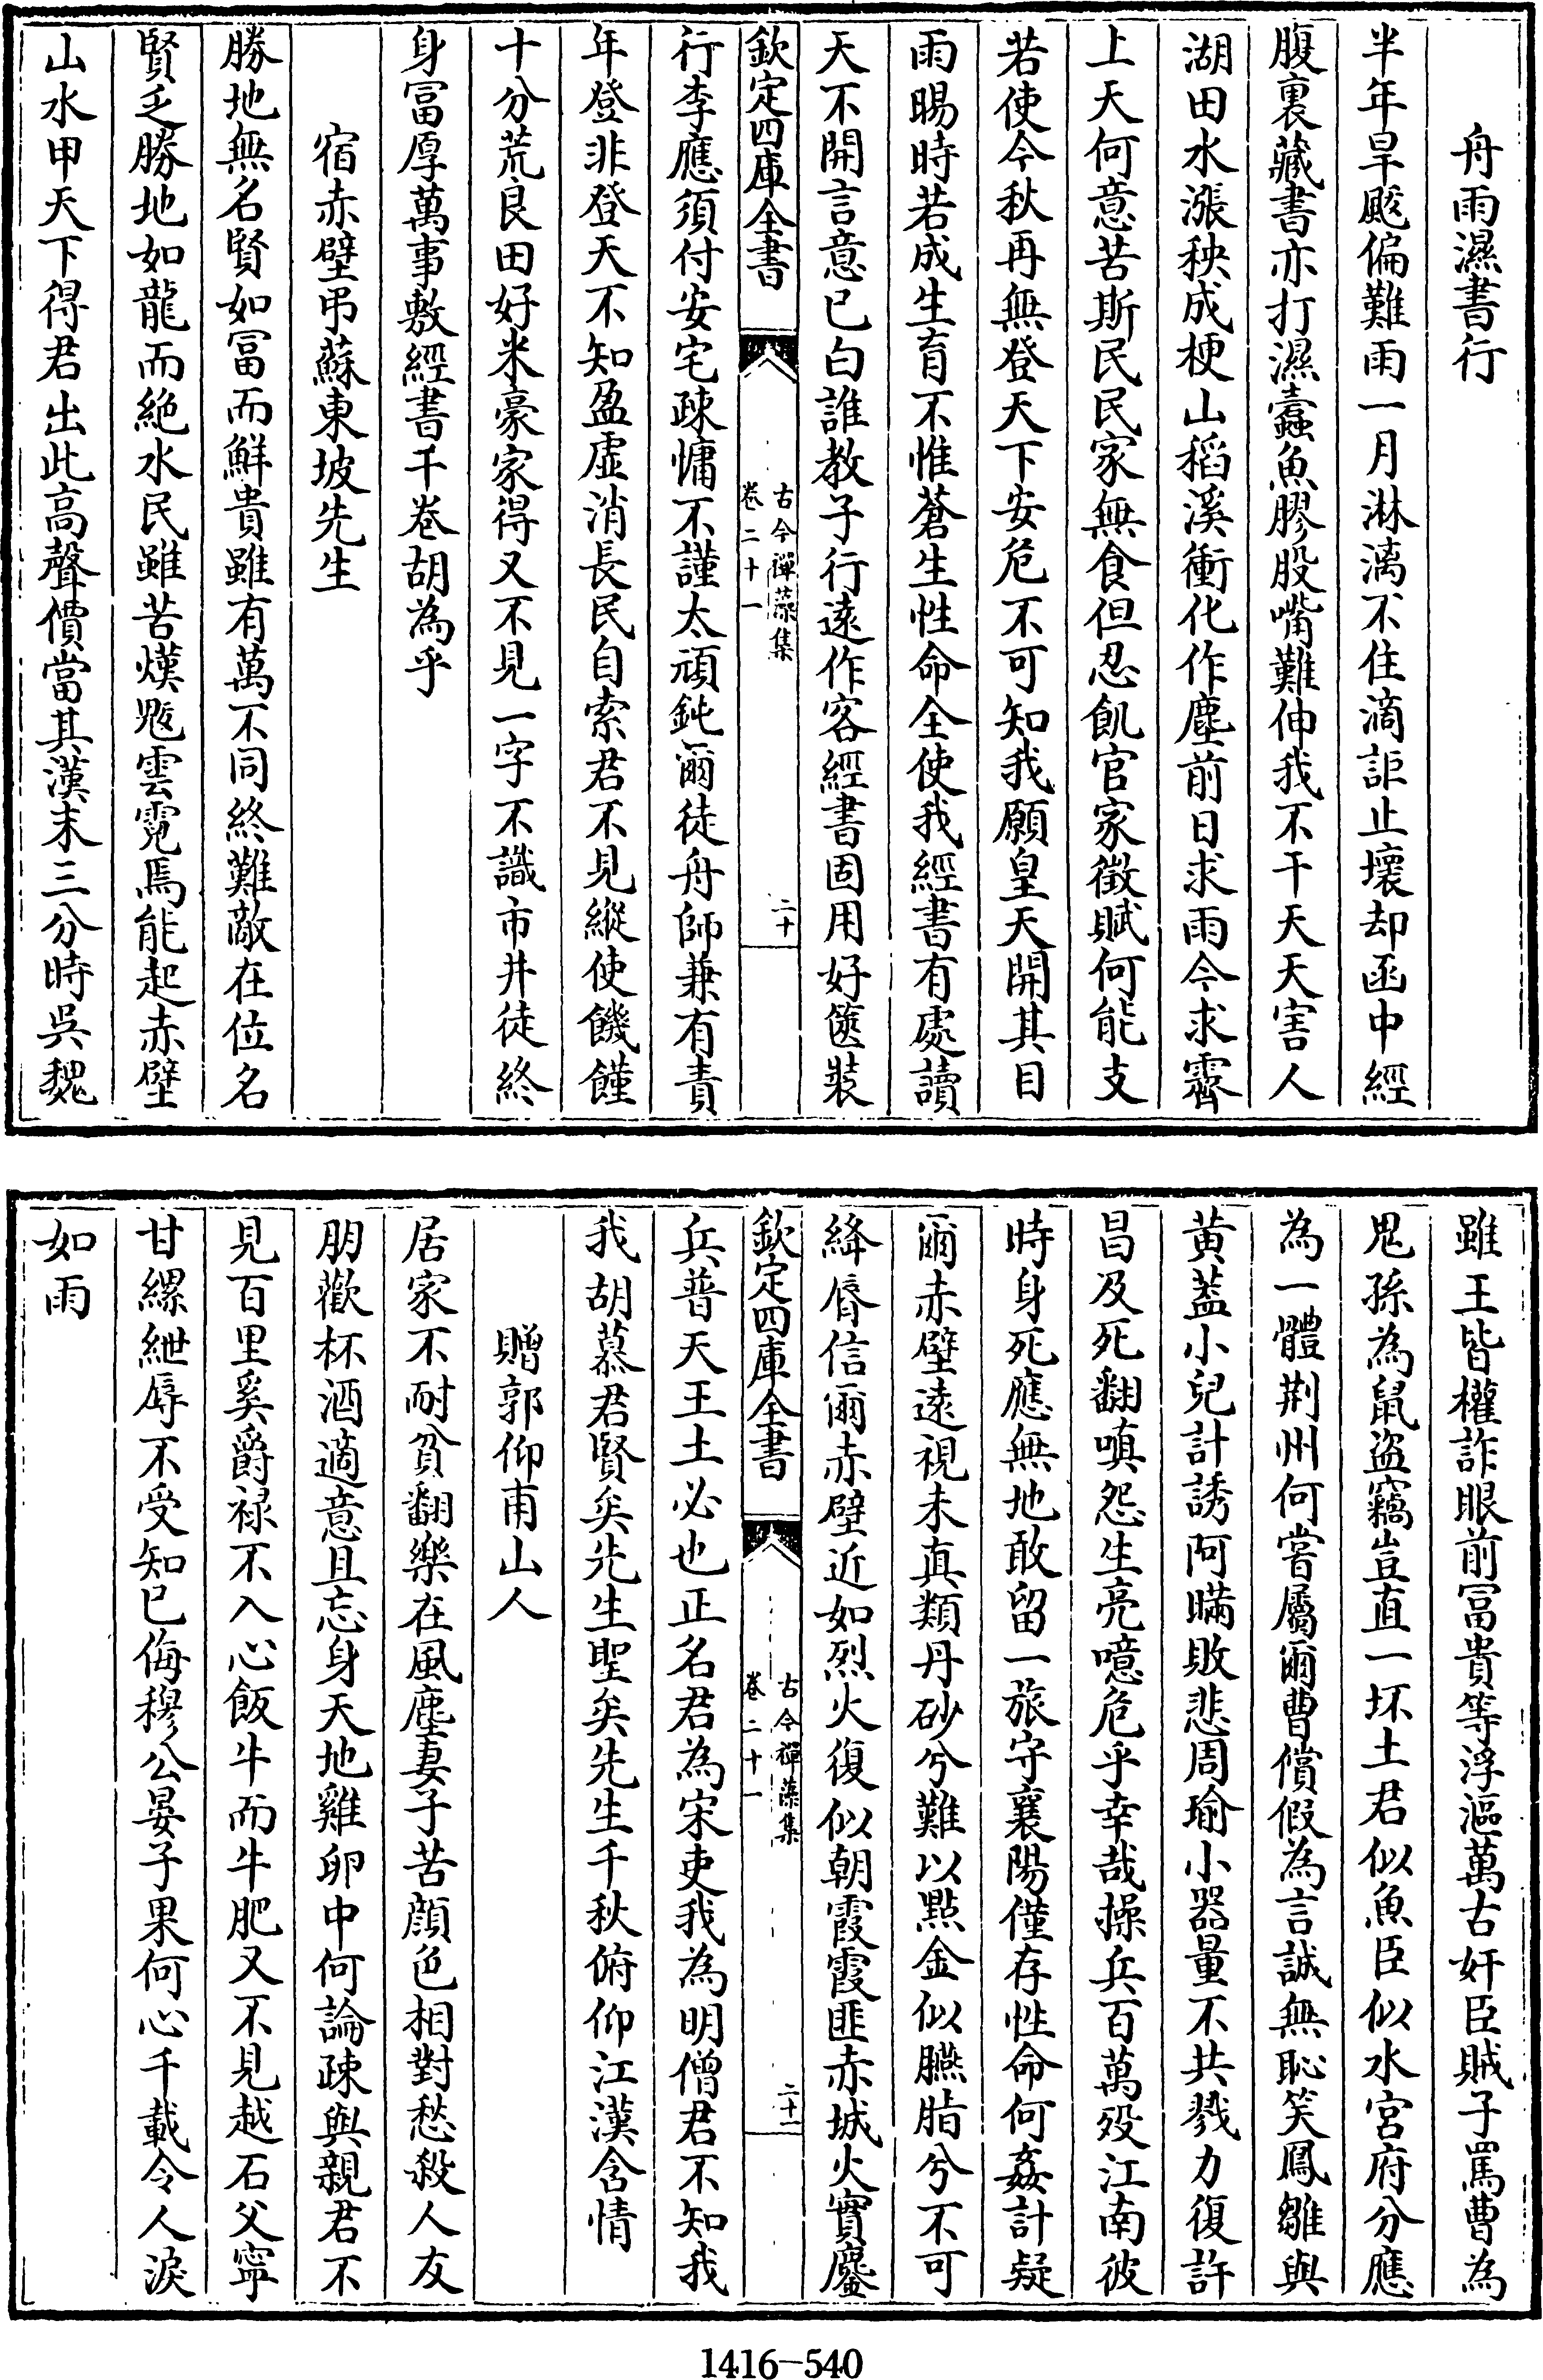 舟雨濕書行
半年旱魃偏難雨一月淋漓不住滴詎止壞却函中經
腹裏藏書亦打濕蠹魚膠股嘴難伸我不干天天害人
湖田水漲秧成梗山稻溪衝化作塵前日求雨今求霽
上天何意苦斯民民家無食但忍飢官家徵賦何能支
若使今秋再無登天下安危不可知我願皇天開其目
雨暘時若成生育不惟蒼生性命全使我經書有處讀
天不開言意已白誰教子行遠作客經書固用好篋裝
欽定四庫全書
古今禪藻集
卷二十一
二十
行李應須付安宅疎慵不謹太頑鈍爾徒舟師兼有責
年登非登天不知盈虛消長民自索君不見縱使饑饉
十分荒良田好米豪家得又不見一字不識市井徒終
身冨厚萬事敷經書千卷胡為乎
宿赤壁弔蘇東坡先生
勝地無名賢如冨而鮮貴雖有萬不同終難敵在位名
賢乏勝地如龍而絶水民雖苦熯魃雲霓焉能起赤壁
山水甲天下得君出此高聲價當其漢末三分時吳魏
雖王皆權詐眼前冨貴等浮漚萬古奸臣賊子罵曹為
鬼孫為鼠盜竊豈直一坏土君似魚臣似水宮府分應
為一體荆州何嘗屬爾曹償假為言誠無恥笑鳳雛與
黄葢小兒計誘阿瞞敗悲周瑜小器量不共戮力復許
昌及死翻嗔怨生亮噫危乎幸哉操兵百萬殁江南彼
時身死應無地敢留一旅守襄陽僅存性命何姦計疑
爾赤壁遠視未真類丹砂兮難以點金似臙脂兮不可
絳脣信爾赤壁近如烈火復似朝霞霞匪赤城火實鏖
欽定四庫全書
古今禪藻集
卷二十一
二十一
兵普天王土必也正名君為宋吏我為明僧君不知我
我胡慕君賢矣先生聖矣先生千秋俯仰江漢含情
贈郭仰甫山人
居家不耐貧翻樂在風塵妻子苦顔色相對愁殺人友
朋歡杯酒適意且忘身天地雞卵中何論疎與親君不
見百里奚爵禄不入心飯牛而牛肥又不見越石父寜
甘縲紲辱不受知已侮穆公晏子果何心千載令人淚
如雨
1416-540